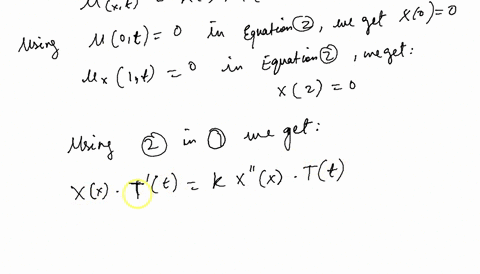 u(x,t) =
Using u(0,t) = 0 in Equation ②, we get X(0) = 0
u_x(1,t) = 0 in Equation ②, we get:
X(2) = 0
Using ② in ① we get:
X(x) · T'(t) = k X''(x) · T(t)